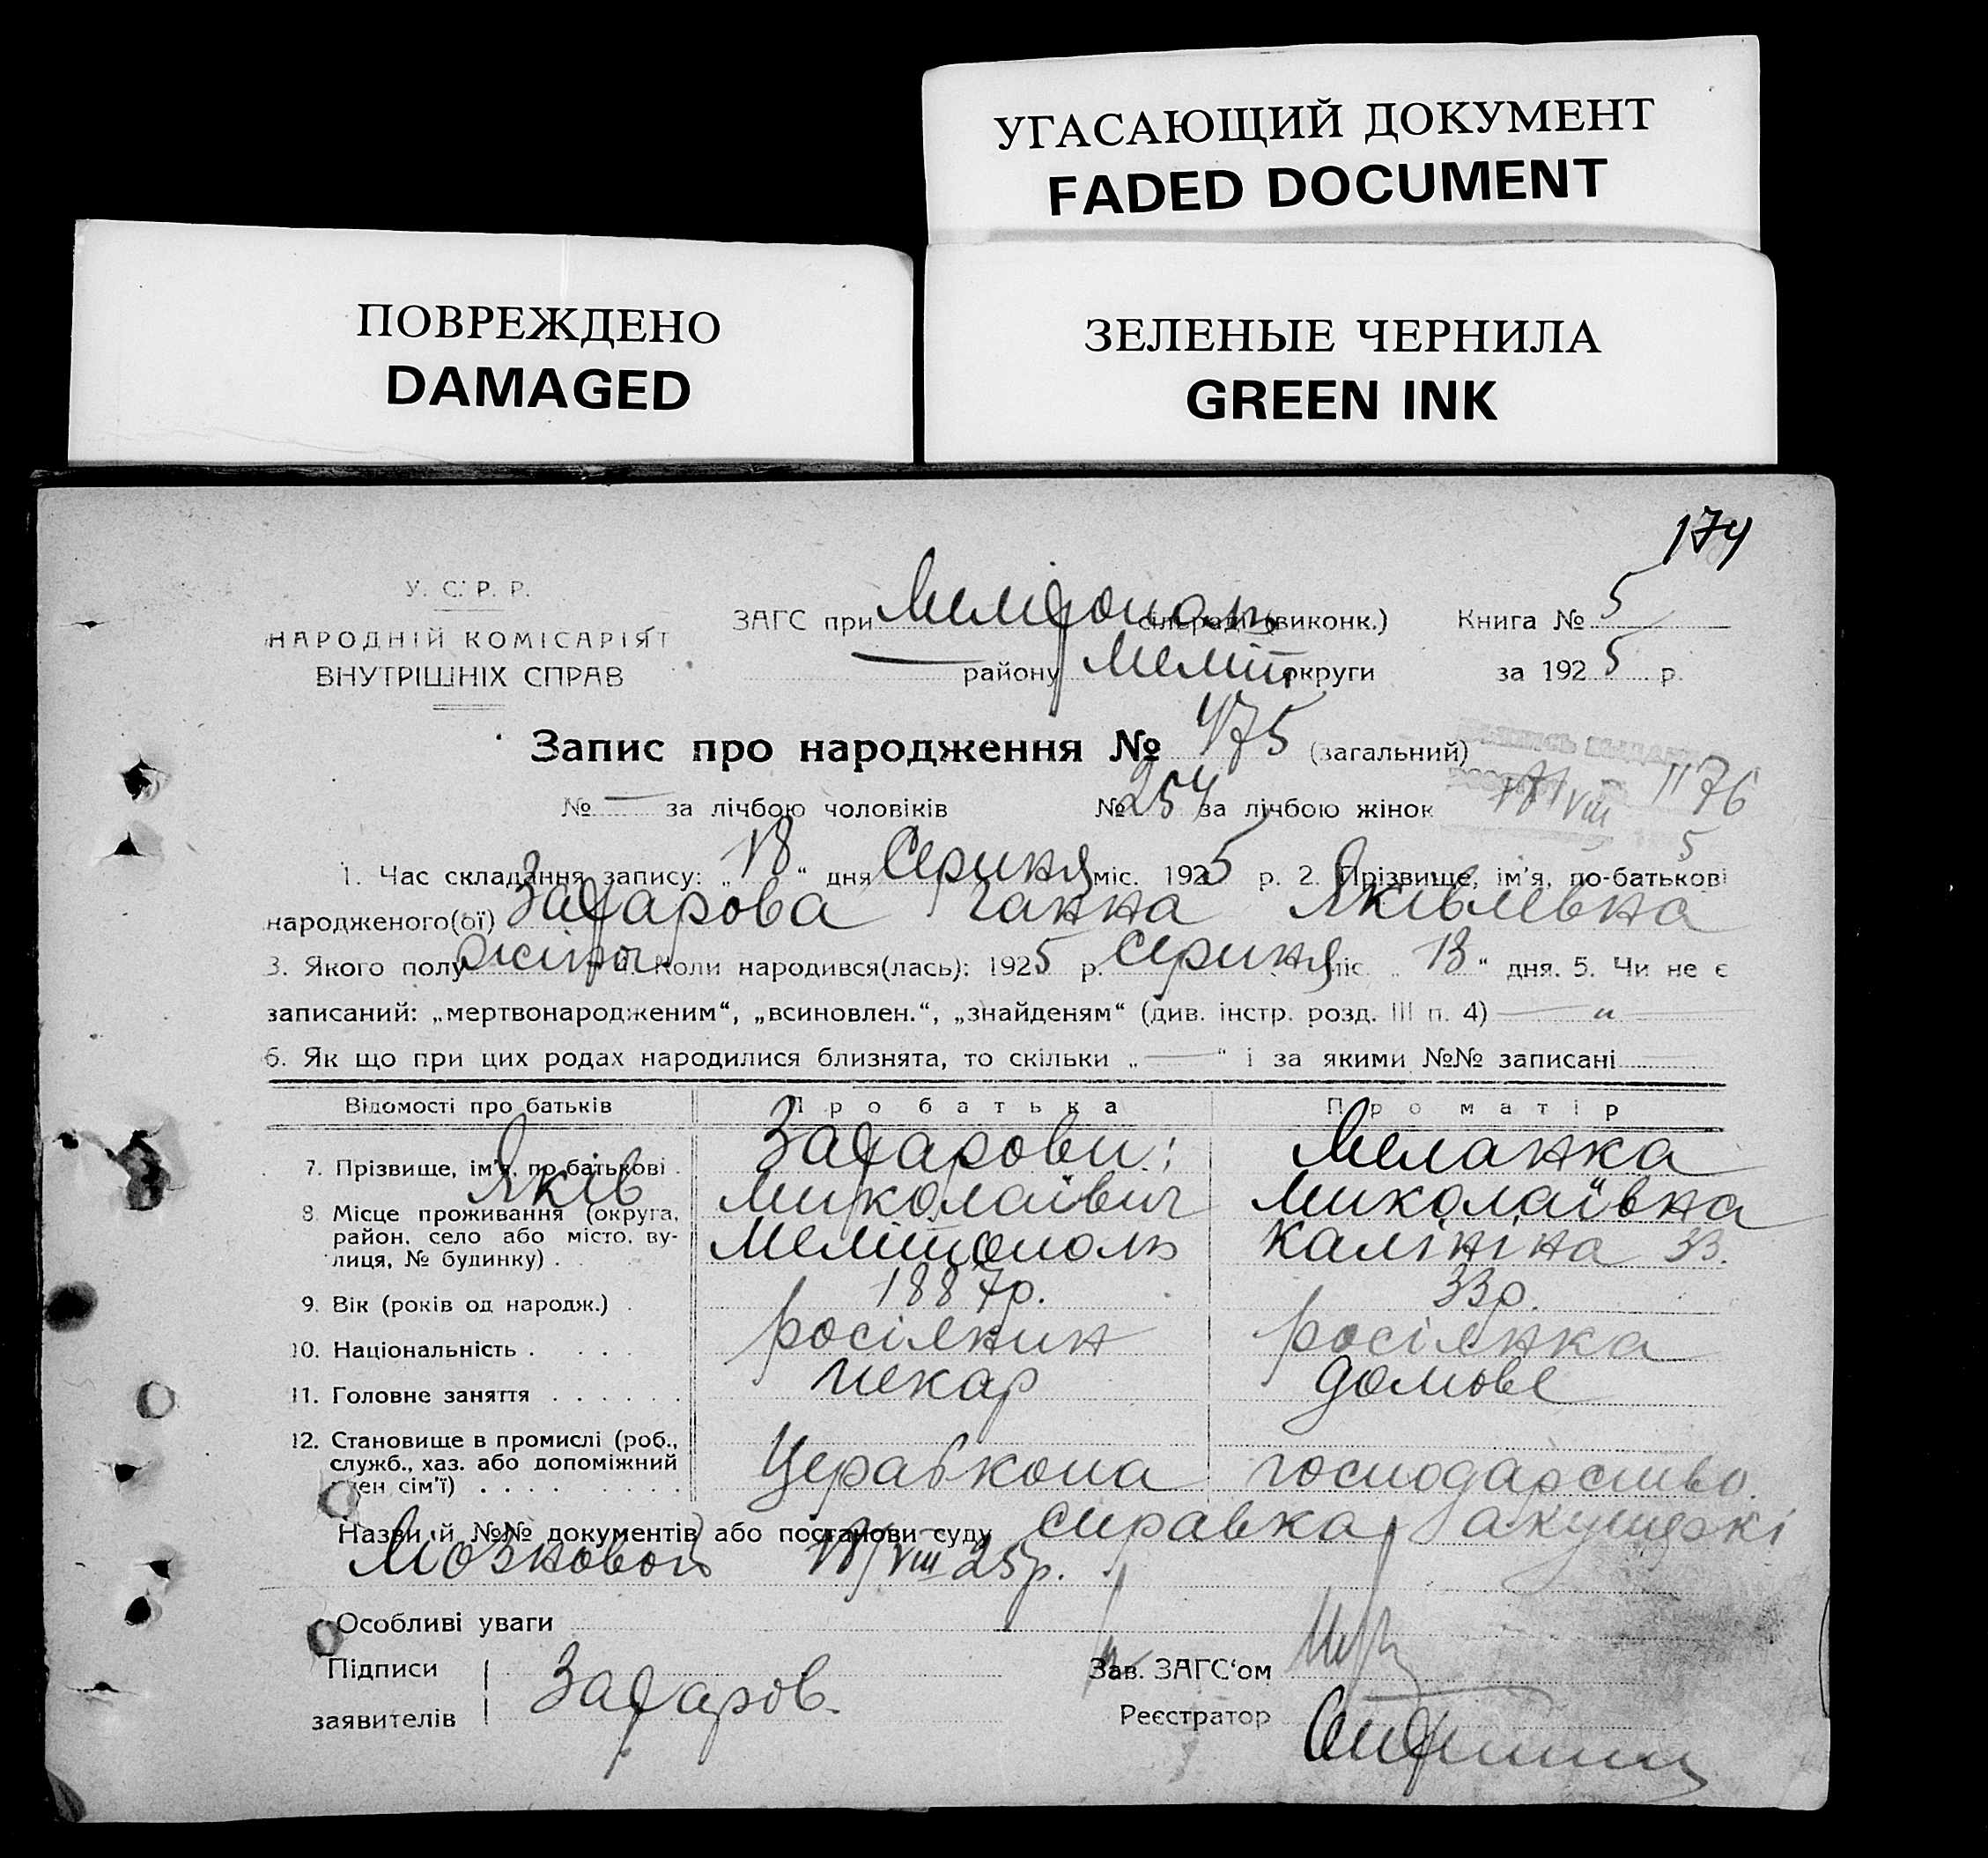 УГАСАЮЩИЙ ДОКУМЕНТ
FADED DOCUMENT
ПОВРЕЖДЕНО
DAMAGED
ЗЕЛЕНЫЕ ЧЕРНИЛА
GREEN INK
174
У. С. Р. Р.
НАРОДНІЙ КОМІСАРІЯТ
ВНУТРІШНІХ СПРАВ
ЗАГС при сільраді (виконк.) Книга № 5
району Меліт округи за 1925 р.
Запис про народження № 475 (загальний)
№ — за лічбою чоловіків № 254 за лічбою жінок
18/VIII 1176
5
1. Час складання запису: „18“ дня Серпня міс. 1925 р. 2. Прізвище, ім'я, по-батькові
народженого(ої) Захарова Ганна Яківлівна
3. Якого полу жіноч. 4. Коли народився(лась): 1925 р. Серпня міс. „13“ дня. 5. Чи не є
записаний: „мертвонародженим“, „всиновлен.“, „знайденям“ (див. інстр. розд. III п. 4) — „ —
6. Як що при цих родах народилися близнята, то скільки „—“ і за якими №№ записані
Відомості про батьків Про батька Про матір
7. Прізвище, ім'я, по-батькові Захарови: Меланка
Яків Миколаівич Миколаївна
8. Місце проживання (округа, район, село або місто, вулиця, № будинку) Мелітополь Калініна 33.
9. Вік (років од народж.) 1887р. 33р.
10. Національність росіянин росіянка
11. Головне заняття пекар домове
12. Становище в промислі (роб., служб., хаз. або допоміжний член сім'ї) Церабкопа господарство.
Назви й №№ документів або постанови суду справка акушеркі
18/VIII 25р.
Особливі уваги
Підписи
заявителів Захаров.
Зав. ЗАГС'ом
Реєстратор